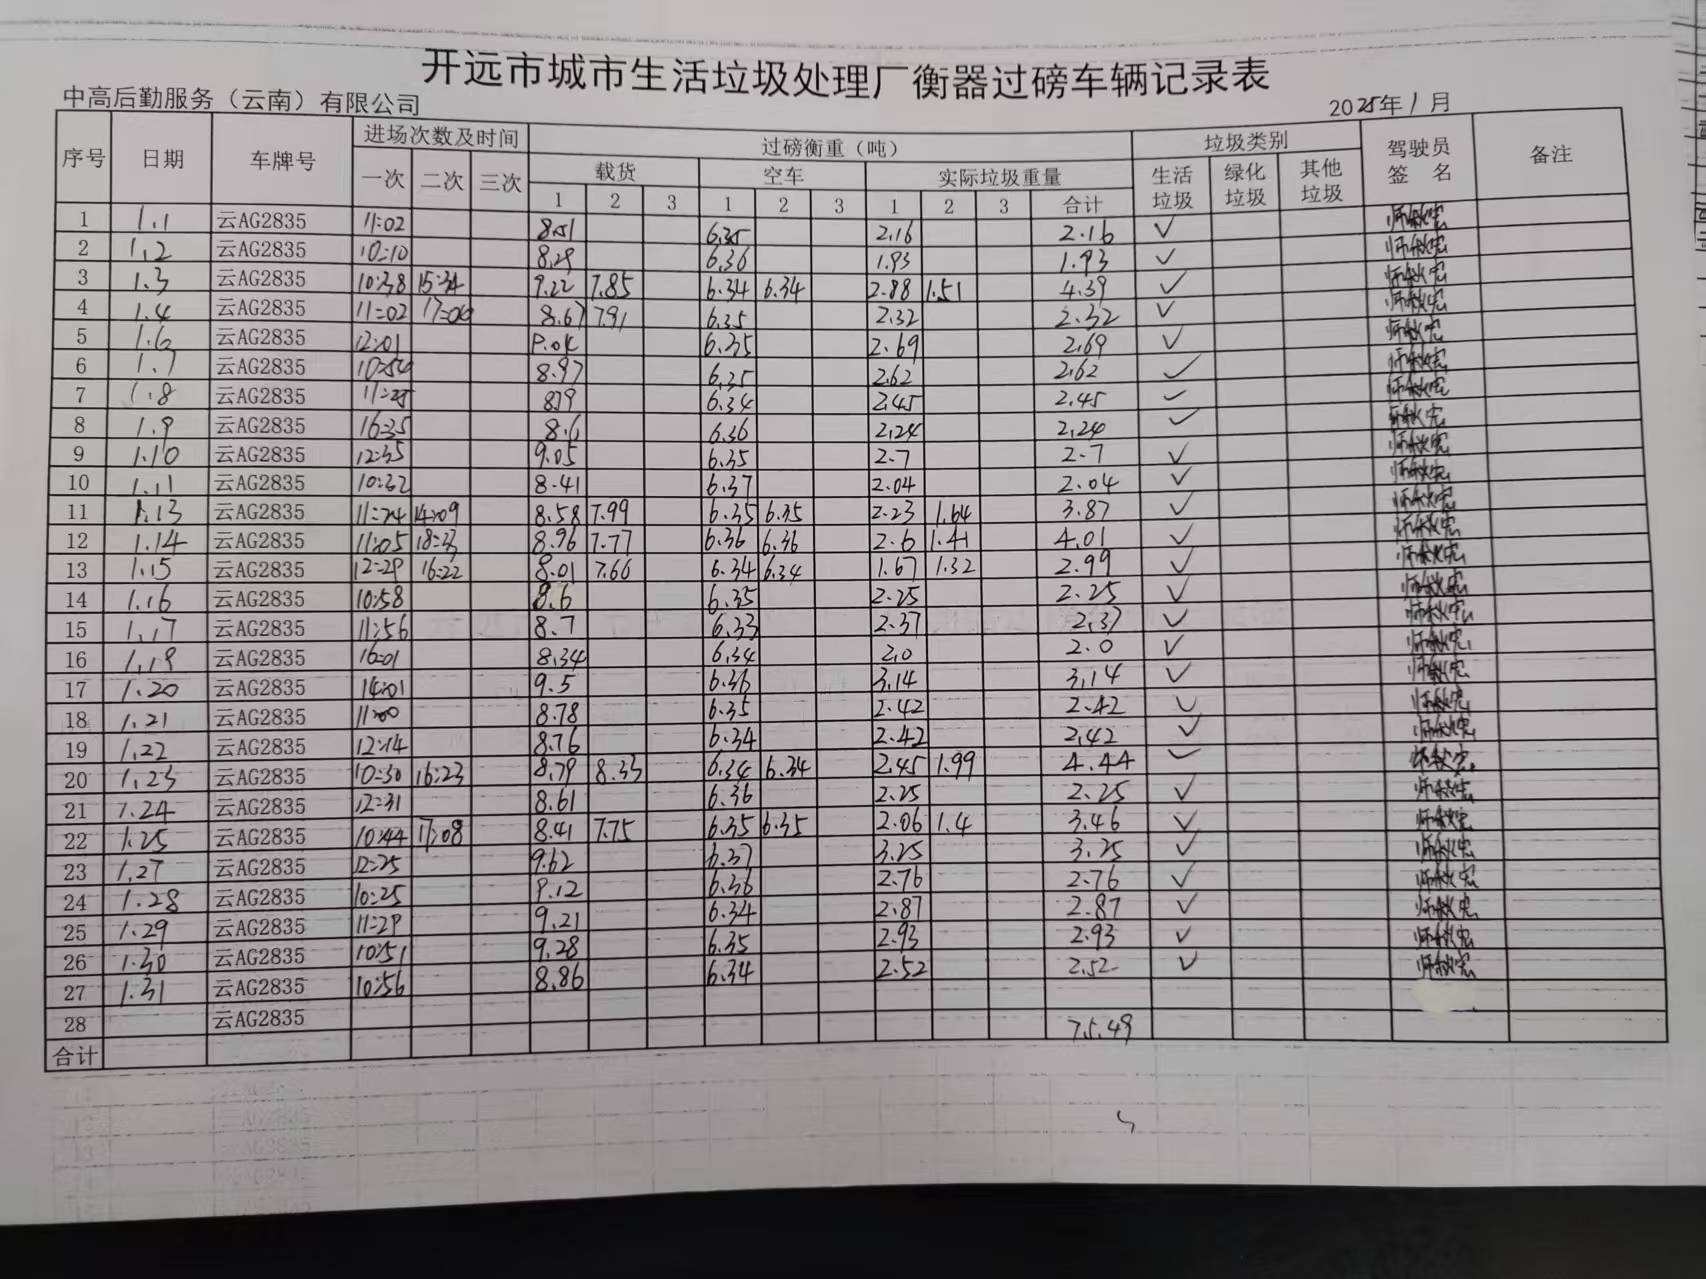 开远市城市生活垃圾处理厂衡器过磅车辆记录表
中高后勤服务（云南）有限公司 2025年1月
序号 日期 车牌号 进场次数及时间 过磅衡重（吨） 垃圾类别 驾驶员签名 备注
一次 二次 三次 载货 空车 实际垃圾重量 生活垃圾 绿化垃圾 其他垃圾
1 2 3 1 2 3 1 2 3 合计
1 1.1 云AG2835 11:02 8.51 6.35 2.16 2.16 ✓
2 1.2 云AG2835 10:10 8.29 6.36 1.93 1.93 ✓
3 1.3 云AG2835 10:38 15:34 9.22 7.85 6.34 6.34 2.88 1.51 4.39 ✓
4 1.4 云AG2835 11:02 17:06 8.67 7.91 6.35 2.32 2.32 ✓
5 1.6 云AG2835 12:01 6.35 2.69 2.69 ✓
6 1.7 云AG2835 10:54 8.97 6.35 2.62 2.62 ✓
7 1.8 云AG2835 11:25 879 6.34 2.45 2.45 ✓
8 1.9 云AG2835 16:35 8.6 6.36 2.24 2.24 ✓
9 1.10 云AG2835 12:35 9.05 6.35 2.7 2.7 ✓
10 1.11 云AG2835 10:32 8.41 6.37 2.04 2.04 ✓
11 1.13 云AG2835 11:24 14:09 8.58 7.99 6.35 6.35 2.23 1.64 3.87 ✓
12 1.14 云AG2835 11:05 18:23 8.96 7.77 6.36 6.36 2.6 1.41 4.01 ✓
13 1.15 云AG2835 12:29 16:22 8.01 7.66 6.34 6.34 1.67 1.32 2.99 ✓
14 1.16 云AG2835 10:58 8.6 6.35 2.25 2.25 ✓
15 1.17 云AG2835 11:56 8.7 6.33 2.37 2.37 ✓
16 1.19 云AG2835 16:01 8.34 6.34 2.0 2.0 ✓
17 1.20 云AG2835 14:01 9.5 6.36 3.14 3.14 ✓
18 1.21 云AG2835 11:00 8.78 6.35 2.42 2.42 ✓
19 1.22 云AG2835 12:14 8.76 6.34 2.42 2.42 ✓
20 1.23 云AG2835 10:30 16:23 8.79 8.33 6.34 6.34 2.45 1.99 4.44 ✓
21 1.24 云AG2835 12:31 8.61 6.36 2.25 2.25 ✓
22 1.25 云AG2835 10:44 17:08 8.41 7.75 6.35 6.35 2.06 1.4 3.46 ✓
23 1.27 云AG2835 12:25 9.62 6.37 3.25 3.25 ✓
24 1.28 云AG2835 10:25 9.12 6.36 2.76 2.76 ✓
25 1.29 云AG2835 11:29 9.21 6.34 2.87 2.87 ✓
26 1.30 云AG2835 10:51 9.28 6.35 2.93 2.93 ✓
27 1.31 云AG2835 10:56 8.86 6.34 2.52 2.52 ✓
28 云AG2835
合计 75.49